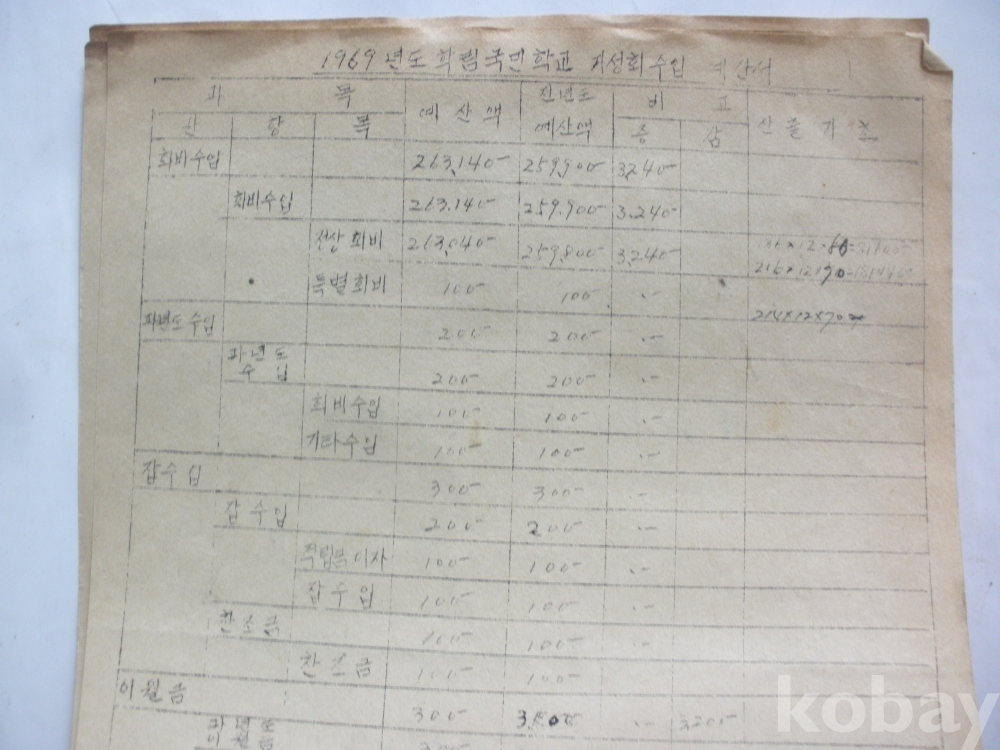 1969년도 학림국민학교 기성회수입 예산서
과 목 예산액 전년도 예산액 비고 산출기초
관 항 목 증 감
회비수입 263,140- 259,900- 3,240-
회비수입 263.140- 259.900- 3.240-
회비 263,040- 259,800- 3,240-
특별회비 100- 100- .-
214×12×70
과년도수입 200- 200- .-
과년도수입 200- 200- .-
회비수입 100- 100- .-
기타수입 100- 100- .-
잡수입 300- 300- .-
잡수입 200- 200- .-
적립금이자 100- 100- .-
잡수입 100- 100- .-
찬조금 100- 100- .-
찬조금 100- 100-
이월금 300- .- 3200-
kobay